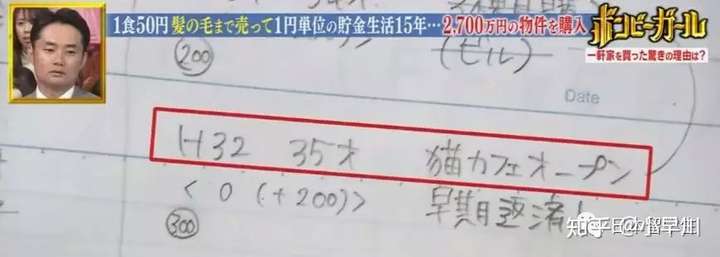 1食50円髪の毛まで売って1円単位の貯金生活15年…2,700万円の物件を購入
ボンビーガール
一軒家を買った驚きの理由は?
200
(ビル)
Date
H32 35才 猫カフェオープン
< 0 (+200)> 早期返済!
300
知乎